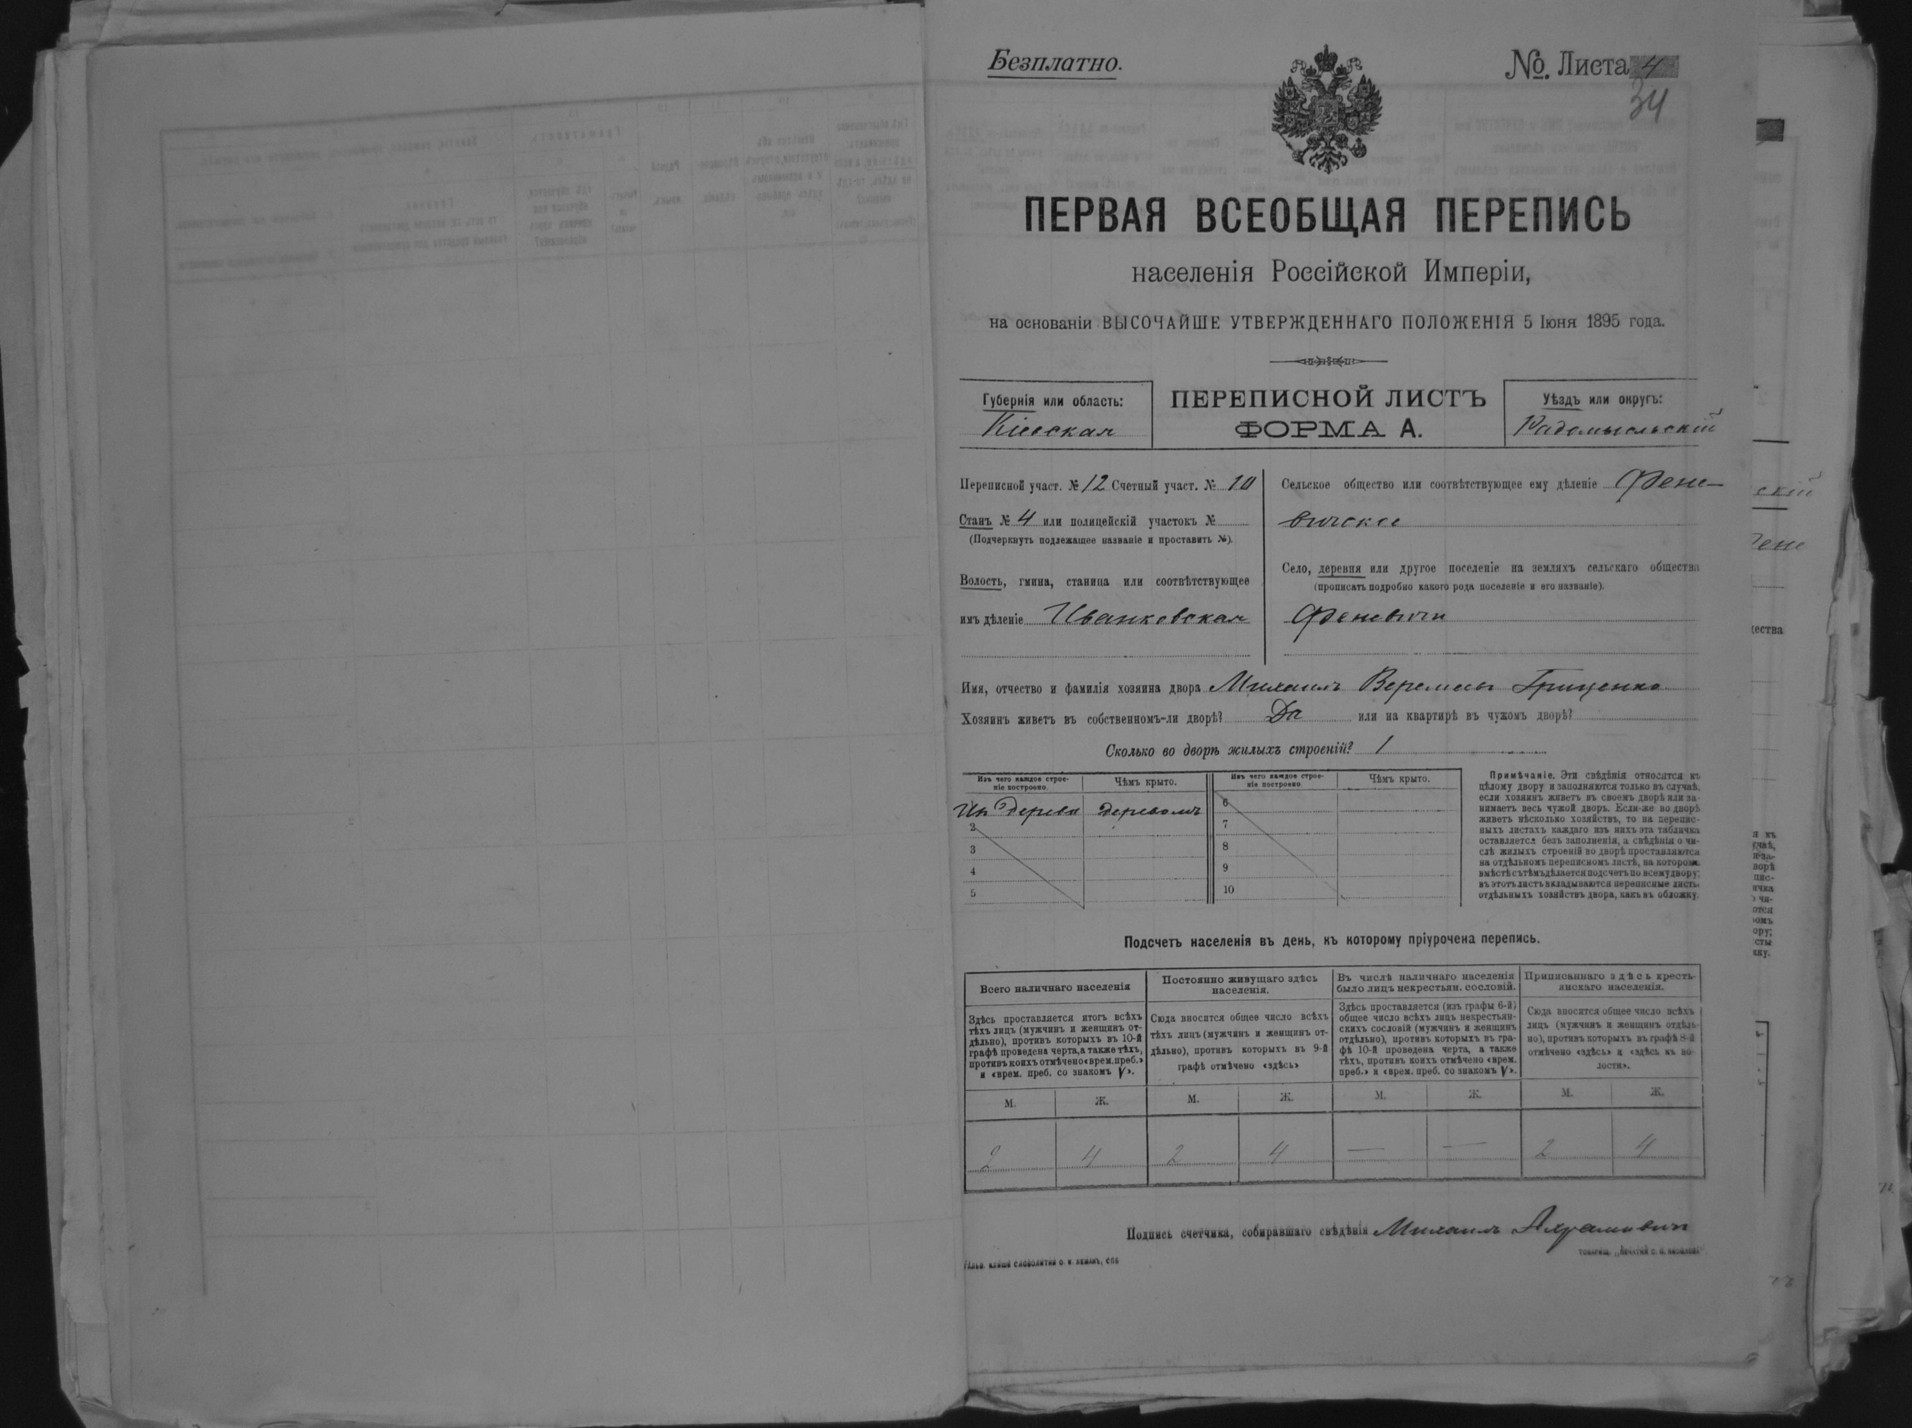 Безплатно.
№. Листа 4
34
ПЕРВАЯ ВСЕОБЩАЯ ПЕРЕПИСЬ
населенія Россійской Имперіи,
на основаніи ВЫСОЧАЙШЕ УТВЕРЖДЕННАГО ПОЛОЖЕНІЯ 5 Іюня 1895 года.
Губернія или область:
Кіевская
ПЕРЕПИСНОЙ ЛИСТЪ
ФОРМА А.
Уѣздъ или округъ:
Радомысльскій
Переписной участ. № 12 Счетный участ. № 10
Станъ № 4 или полицейскій участокъ №
(Подчеркнуть подлежащее названіе и проставить №).
Волость, гмина, станица или соотвѣтствующее
имъ дѣленіе Иванковская
Сельское общество или соотвѣтствующее ему дѣленіе Фене-
вичское
Село, деревня или другое поселеніе на земляхъ сельскаго общества
(прописать подробно какого рода поселеніе и его названіе).
Феневичи
Имя, отчество и фамилія хозяина двора Михаилъ Гриценко
Хозяинъ живетъ въ собственномъ-ли дворѣ? Да или на квартирѣ въ чужомъ дворѣ?
Сколько во дворѣ жилыхъ строеній? 1
Изъ чего каждое строе-
ніе построено.
Чѣмъ крыто.
Изъ чего каждое строе-
ніе построено.
Чѣмъ крыто.
Из дерева деревомъ
2
3
4
5
6
7
8
9
10
Примѣчаніе. Эти свѣдѣнія относятся къ
цѣлому двору и заполняются только въ случаѣ,
если хозяинъ живетъ въ своемъ дворѣ или за-
нимаетъ весь чужой дворъ. Если-же во дворѣ
живетъ нѣсколько хозяйствъ, то на перепис-
ныхъ листахъ каждаго изъ нихъ эта табличка
оставляется безъ заполненія, а свѣдѣнія о чи-
слѣ жилыхъ строеній во дворѣ проставляются
на отдѣльномъ переписномъ листѣ, на которомъ
вмѣстѣ съ тѣмъ дѣлается подсчетъ по всему двору;
въ этотъ листъ вкладываются переписные листы
отдѣльныхъ хозяйствъ двора, какъ въ обложку.
Подсчетъ населенія въ день, къ которому пріурочена перепись.
Всего наличнаго населенія
Здѣсь проставляется итогъ всѣхъ
тѣхъ лицъ (мужчинъ и женщинъ от-
дѣльно), противъ которыхъ въ 10-й
графѣ проведена черта, а также тѣхъ,
противъ коихъ отмѣчено «врем. преб.»
и «врем. преб. со знакомъ V».
Постоянно живущаго здѣсь
населенія.
Сюда вносится общее число всѣхъ
тѣхъ лицъ (мужчинъ и женщинъ от-
дѣльно), противъ которыхъ въ 9-й
графѣ отмѣчено «здѣсь»
Въ числѣ наличнаго населенія
было лицъ некрестьян. сословій.
Здѣсь проставляется (изъ графы 6-й)
общее число всѣхъ лицъ некрестьян-
скихъ сословій (мужчинъ и женщинъ
отдѣльно), противъ которыхъ въ гра-
фѣ 10-й проведена черта, а также
тѣхъ, противъ коихъ отмѣчено «врем.
преб.» и «врем. преб. со знакомъ V».
Приписаннаго здѣсь кресть-
янскаго населенія.
Сюда вносится общее число всѣхъ
лицъ (мужчинъ и женщинъ отдѣль-
но), противъ которыхъ въ графѣ 8-й
отмѣчено «здѣсь» и «здѣсь въ во-
лости».
М. Ж. М. Ж. М. Ж. М. Ж.
2 4 2 4 — — 2 4
Подпись счетчика, собиравшаго свѣдѣнія Михаилъ